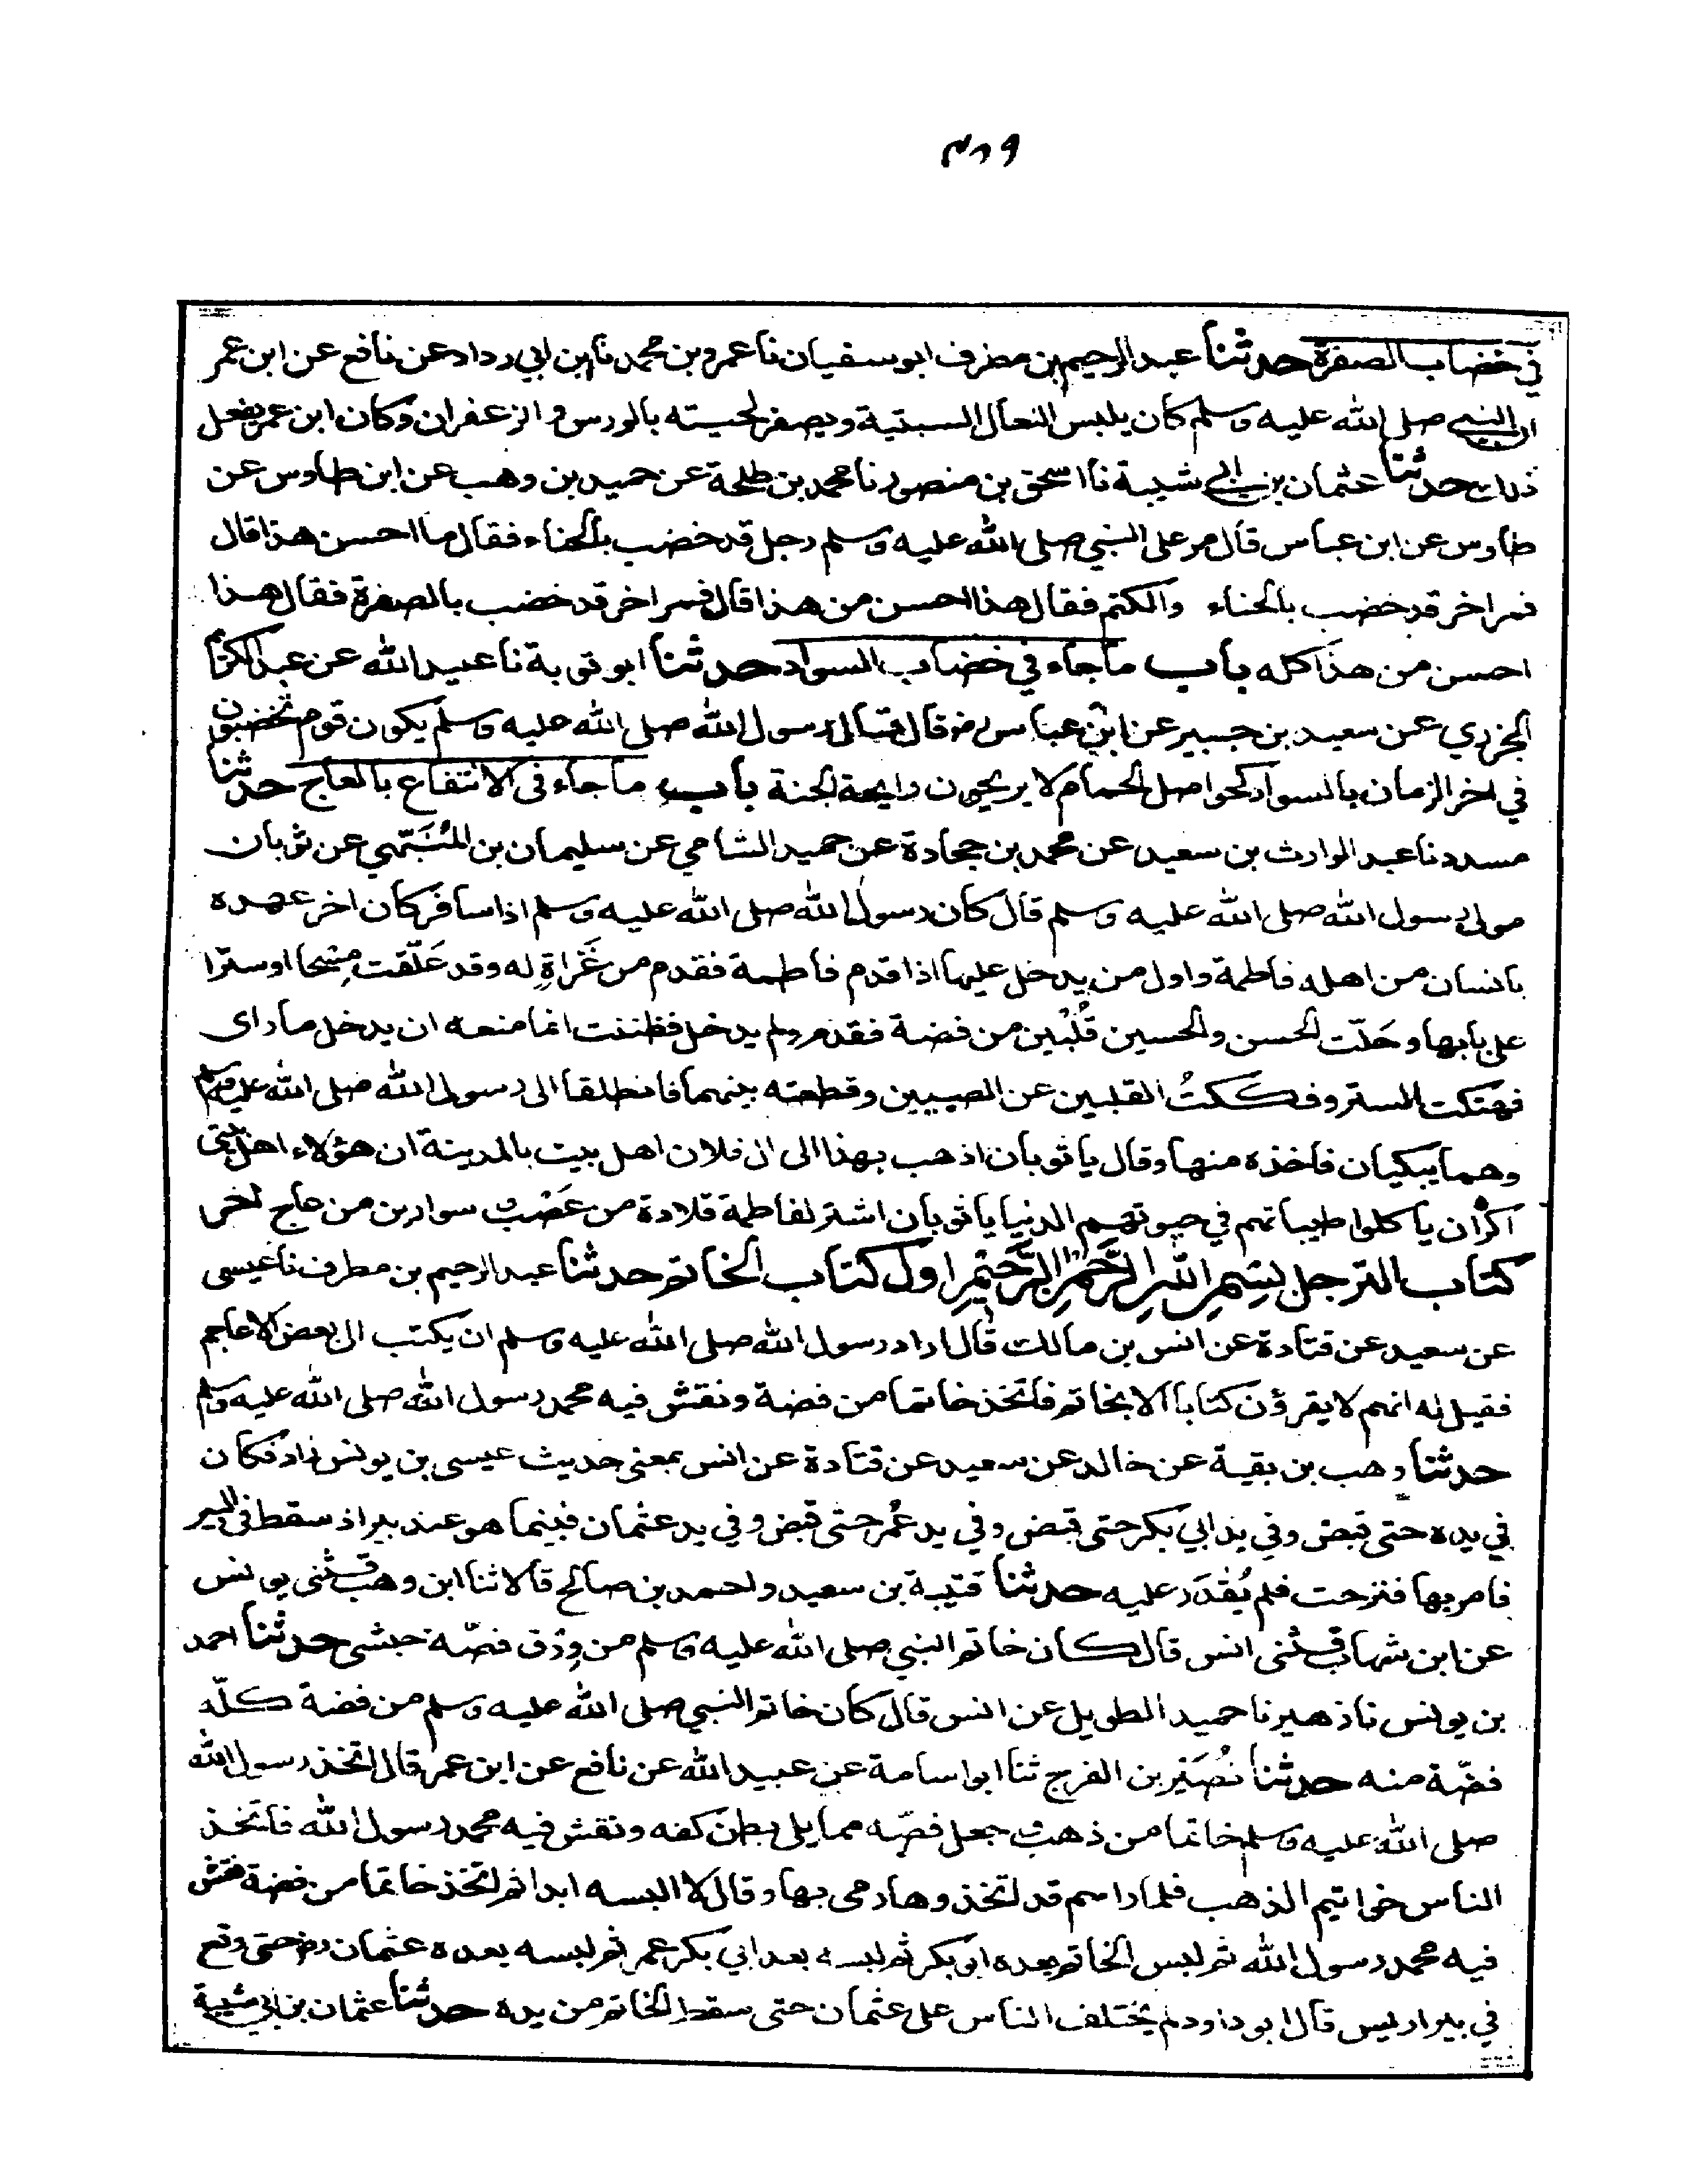 في خضاب الصفرة حدثنا عبد الرحيم بن مطرف ابو سفيان نا عمرو بن محمد نا ابن ابي رداد عن نافع عن ابن عمر
ان النبي صلى الله عليه وسلم كان يلبس النعال السبتية ويصفر لحيته بالورس و الزعفران وكان ابن عمر يفعل
ذلك حدثنا عثمان بن ابي شيبة نا اسحق بن منصور نا محمد بن طلحة عن حميد بن وهب عن ابن طاوس عن
طاوس عن ابن عباس قال مر على النبي صلى الله عليه وسلم رجل قد خضب بالحناء فقال ما احسن هذا قال
فمر اخر قد خضب بالحناء والكتم فقال هذا احسن من هذا قال فمر اخر قد خضب بالصفرة فقال هذا
احسن من هذا كله باب ما جاء في خضاب السواد حدثنا ابو توبة نا عبيد الله عن عبد الكريم
الجزري عن سعيد بن جبير عن ابن عباس رض قال قال رسول الله صلى الله عليه وسلم يكون قوم يخضبون
في اخر الزمان بالسواد كحواصل الحمام لا يريحون رايحة الجنة باب ما جاء في الانتفاع بالعاج حدثنا
مسدد نا عبد الوارث بن سعيد عن محمد بن جحادة عن حميد الشامي عن سليمان بن المنبهي عن ثوبان
مولى رسول الله صلى الله عليه وسلم قال كان رسول الله صلى الله عليه وسلم اذا سافر كان اخر عهده
بانسان من اهله فاطمة واول من يدخل عليها اذا قدم فاطمة فقدم من غَزاةٍ له وقد عَلّقت مِسْحا او سترا
على بابها وحَلّت الحسن والحسين قُلْبين من فضة فقدم ولم يدخل فظننت انما منعه ان يدخل ما راى
فهتكت الستر وفككتُ القلبين عن الصبيين وقطعته بينهما فانطلقا الى رسول الله صلى الله عليه وسلم
وهما يبكيان فاخذه منهما وقال يا ثوبان اذهب بهذا الى ال فلان اهل بيت بالمدينة ان هؤلاء اهل بيتى
اكره ان ياكلوا طيباتهم في حيوتهم الدنيا يا ثوبان اشتر لفاطمة قلادة من عَصْب و سوارين من عاج اخر
كتاب الترجل بِسْمِ اللهِ الرَّحْمنِ الرَّحِيْمِ اول كتاب الخاتم حدثنا عبد الرحيم بن مطرف نا عيسى
عن سعيد عن قتادة عن انس بن مالك قال اراد رسول الله صلى الله عليه وسلم ان يكتب الى بعض الاعاجم
فقيل له انهم لا يقرؤن كتابا الا بخاتم فاتخذ خاتما من فضة ونقش فيه محمد رسول الله صلى الله عليه وسلم
حدثنا وهب بن بقية عن خالد عن سعيد عن قتادة عن انس بمعنى حديث عيسى بن يونس زاد فكان
في يده حتى قبض وفي يد ابي بكر حتى قبض وفي يد عُمر حتى قبض وفي يد عثمان فبينما هو عند بير اذ سقط في البير
فامر بها فنزحت فلم يُقْدَر عليه حدثنا قتيبة بن سعيد واحمد بن صالح قالا ثنا ابن وهب قثنى يونس
عن ابن شهاب قثنى انس قال كان خاتم النبي صلى الله عليه وسلم من وِرْق فصّه حبشى حدثنا احمد
بن يونس نا زهير نا حميد الطويل عن انس قال كان خاتم النبي صلى الله عليه وسلم من فضة كلّه
فصّة منه حدثنا نُصَيْر بن الفرج ثنا ابو اسامة عن عبيد الله عن نافع عن ابن عمر قال اتخذ رسول الله
صلى الله عليه وسلم خاتما من ذهب و جعل فصّه مما يلي بطن كفه ونقش فيه محمد رسول الله فاتخذ
الناس خواتيم الذهب فلما راسم قد اتخذوها رمى بها وقال لا البسه ابدا ثم اتخذ خاتما من فضة نقش
فيه محمد رسول الله ثم لبس الخاتم بعده ابو بكر ثم لبسه بعد ابي بكر عمر ثم لبسه بعده عثمان رض حتى وقع
في بير اريس قال ابو داود لم يختلف الناس على عثمان حتى سقط الخاتم من يده حدثنا عثمان بن ابي شيبة